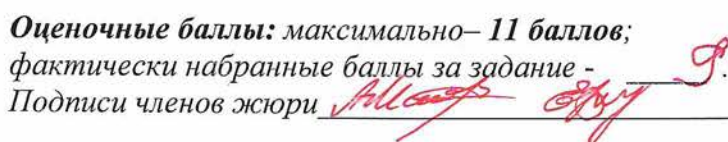 Оценочные баллы: максимально– 11 баллов;
фактически набранные баллы за задание - ______.
Подписи членов жюри